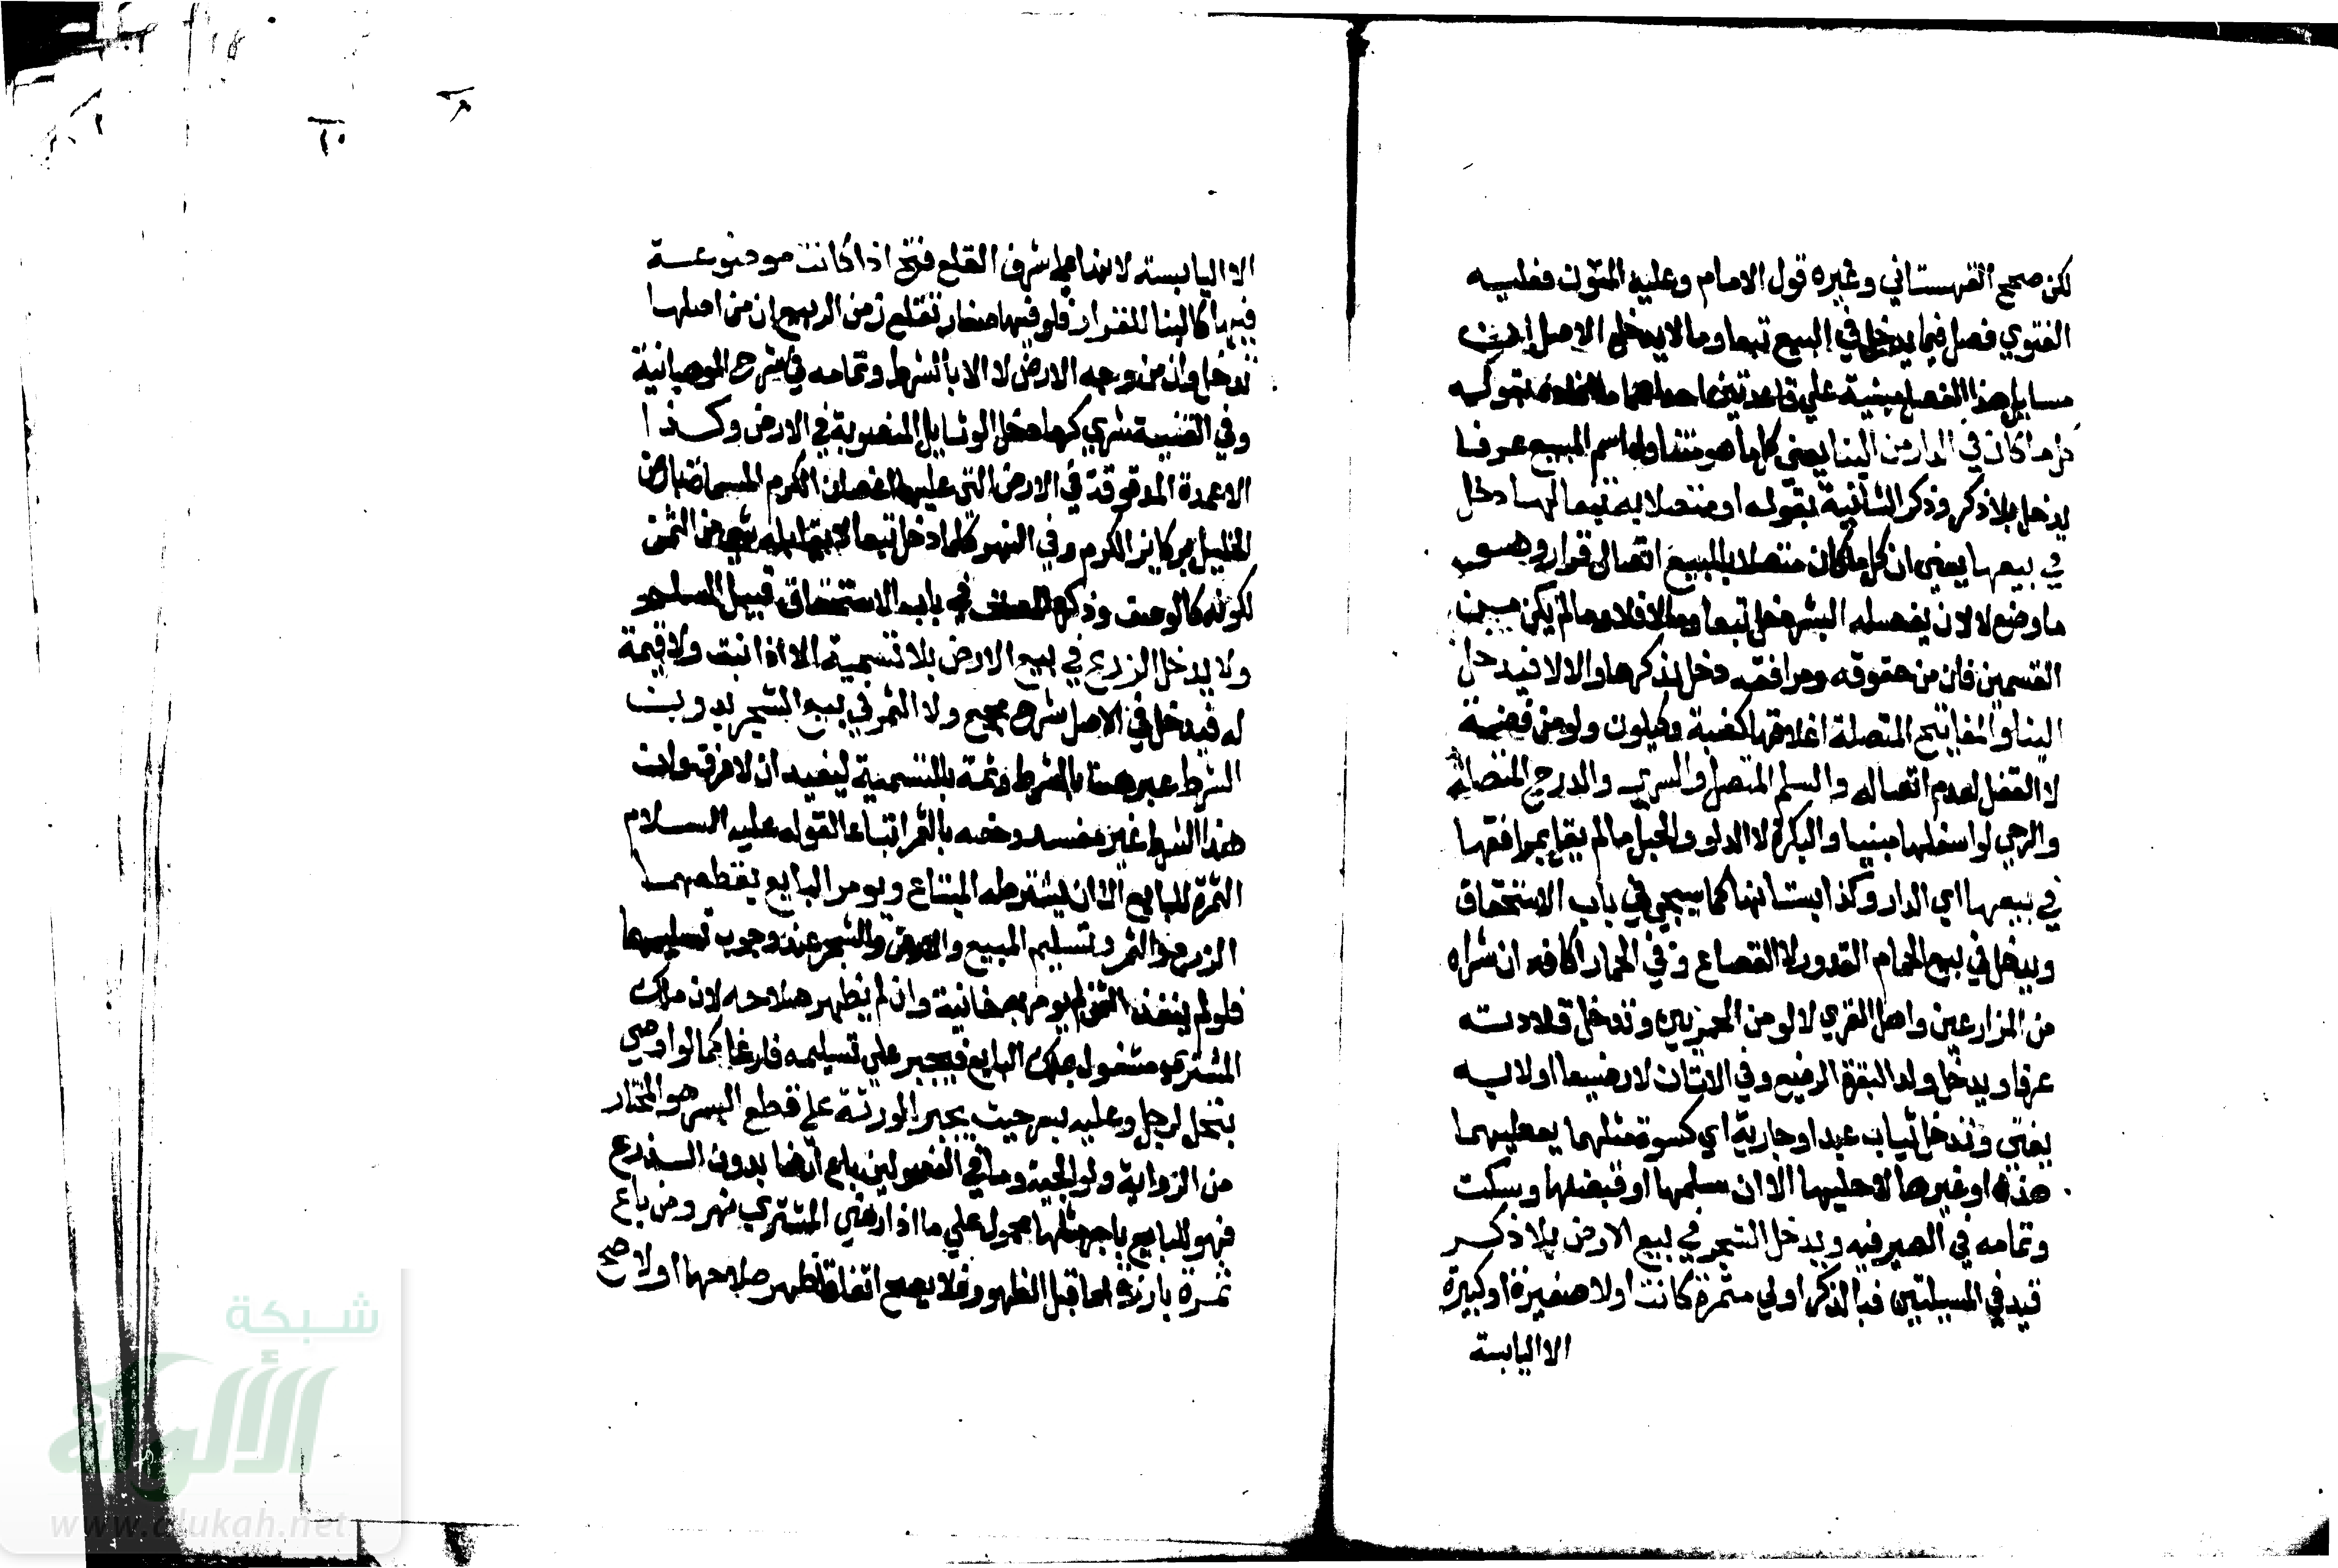 لكن صحح القهستاني وغيره قول الامام وعليه المتون فعليه
الفتوي فصل فيما يدخل في البيع تبعا وما لا يدخل الاصل ان
مسايل هذا الفصل مبنية علي قاعدتين احداهما ما افاده بقوله
كل ما كان في الدار من البنا يعني كل ما هو متناول اسم المبيع عرفا
يدخل بلا ذكر وذكر الثانية بقوله او متصلا به تبعا لها دخل
في بيعها يعني ان كل ما كان متصلا بالمبيع اتصال قرار وهو
ما وضع لا لان يفصله البشر دخل تبعا وما لا فلا وما لم يكن من
القسمين فان من حقوقه ومرافقه دخل بذكرها والا لا فيدخل
البنا والمفاتيح المتصلة اغلاقها كضبة وكيلون ولو من فضة
لا القفل لعدم اتصاله والسلم المتصل والسرير والدرج المتصلة
والرحي لو اسفلها مبنيا والبكرة لا الدلو والحبل ما لم يقل بمرافقها
في بيعها اي الدار وكذا بستانها كما سيجي في باب الاستحقاق
ويدخل في بيع الحمام القدور لا القصاع وفي الحمار اكافه ان شراه
من المزارعين واهل القري لا لو من الحمريين وتدخل قلادته
عرفا ويدخل ولد البقرة الرضيع وفي الاتان لا رضيعا اولا به
يفتي وتدخل ثياب عبد او جارية اي كسوة مثلهما يعطيهما
هذه او غيرها لا حليها الا ان سلمها او قبضها وسكت
وتمامه في الصيرفيه ويدخل الشجر في بيع الارض بلا ذكر
قيد في المسيلتين فبالذكر اولي مثمرة كانت اولا صغيرة او كبيرة
الا اليابسة
الا اليابسة لانها علي شرف القلع فتح اذا كانت موضوعة
فيها كالبنا للقرار فلو فيها صغار تقلع زمن الربيع ان من اصلها
تدخل وان من وجه الارض لا الا بالشرط وتمامه في شرح الوهبانية
وفي القنية شري كرما دخل الوثايل المنصوبة في الارض وكذا
الاعمدة المدقوقة في الارض التي عليها اغصان الكرم المسماة بارض
الخليل بركايز الكرم وفي النهر كلما دخل تبعا لا يقابله شي من الثمن
لكونه كالوصف وذكره المصنف في باب الاستحقاق قبيل السلم
ولا يدخل الزرع في بيع الارض بلا تسمية الا اذا نبت ولا قيمة
له فيدخل في الاصل شرح مجمع ولا الثمر في بيع الشجر بدون
الشرط عبر هنا بالشرط وثمة بالتسمية ليفيد ان لا فرق وان
هذا الشرط غير مفسد وخصه بالثمر اتباعا لقوله عليه السلام
الثمرة للبايع الا ان يشترطه المبتاع ويومر البايع بقطعهما
الزرع والثمر وتسليم المبيع والارض والشجر عند وجوب تسليمها
فلو لم ينقد الثمن لم يومر به خانية وان لم يظهر صلاحه لان ملك
المشتري مشغول بملك البايع فيجبر علي تسليمه فارغا كما لو اوصي
بنخل لرجل وعليه بسر حيث يجبر الورثة علي قطع البسر هو المختار
من الرواية ولوالجية وما في الفصولين باع ارضا بدون الزرع
فهو للبايع باجر مثلها محمول علي ما اذا رضي المشتري نهر ومن باع
ثمرة بارزة اما قبل الظهور فلا يصح اتفاقا ظهر صلاحها اولا صح
شبكة
الألوكة
www.alukah.net